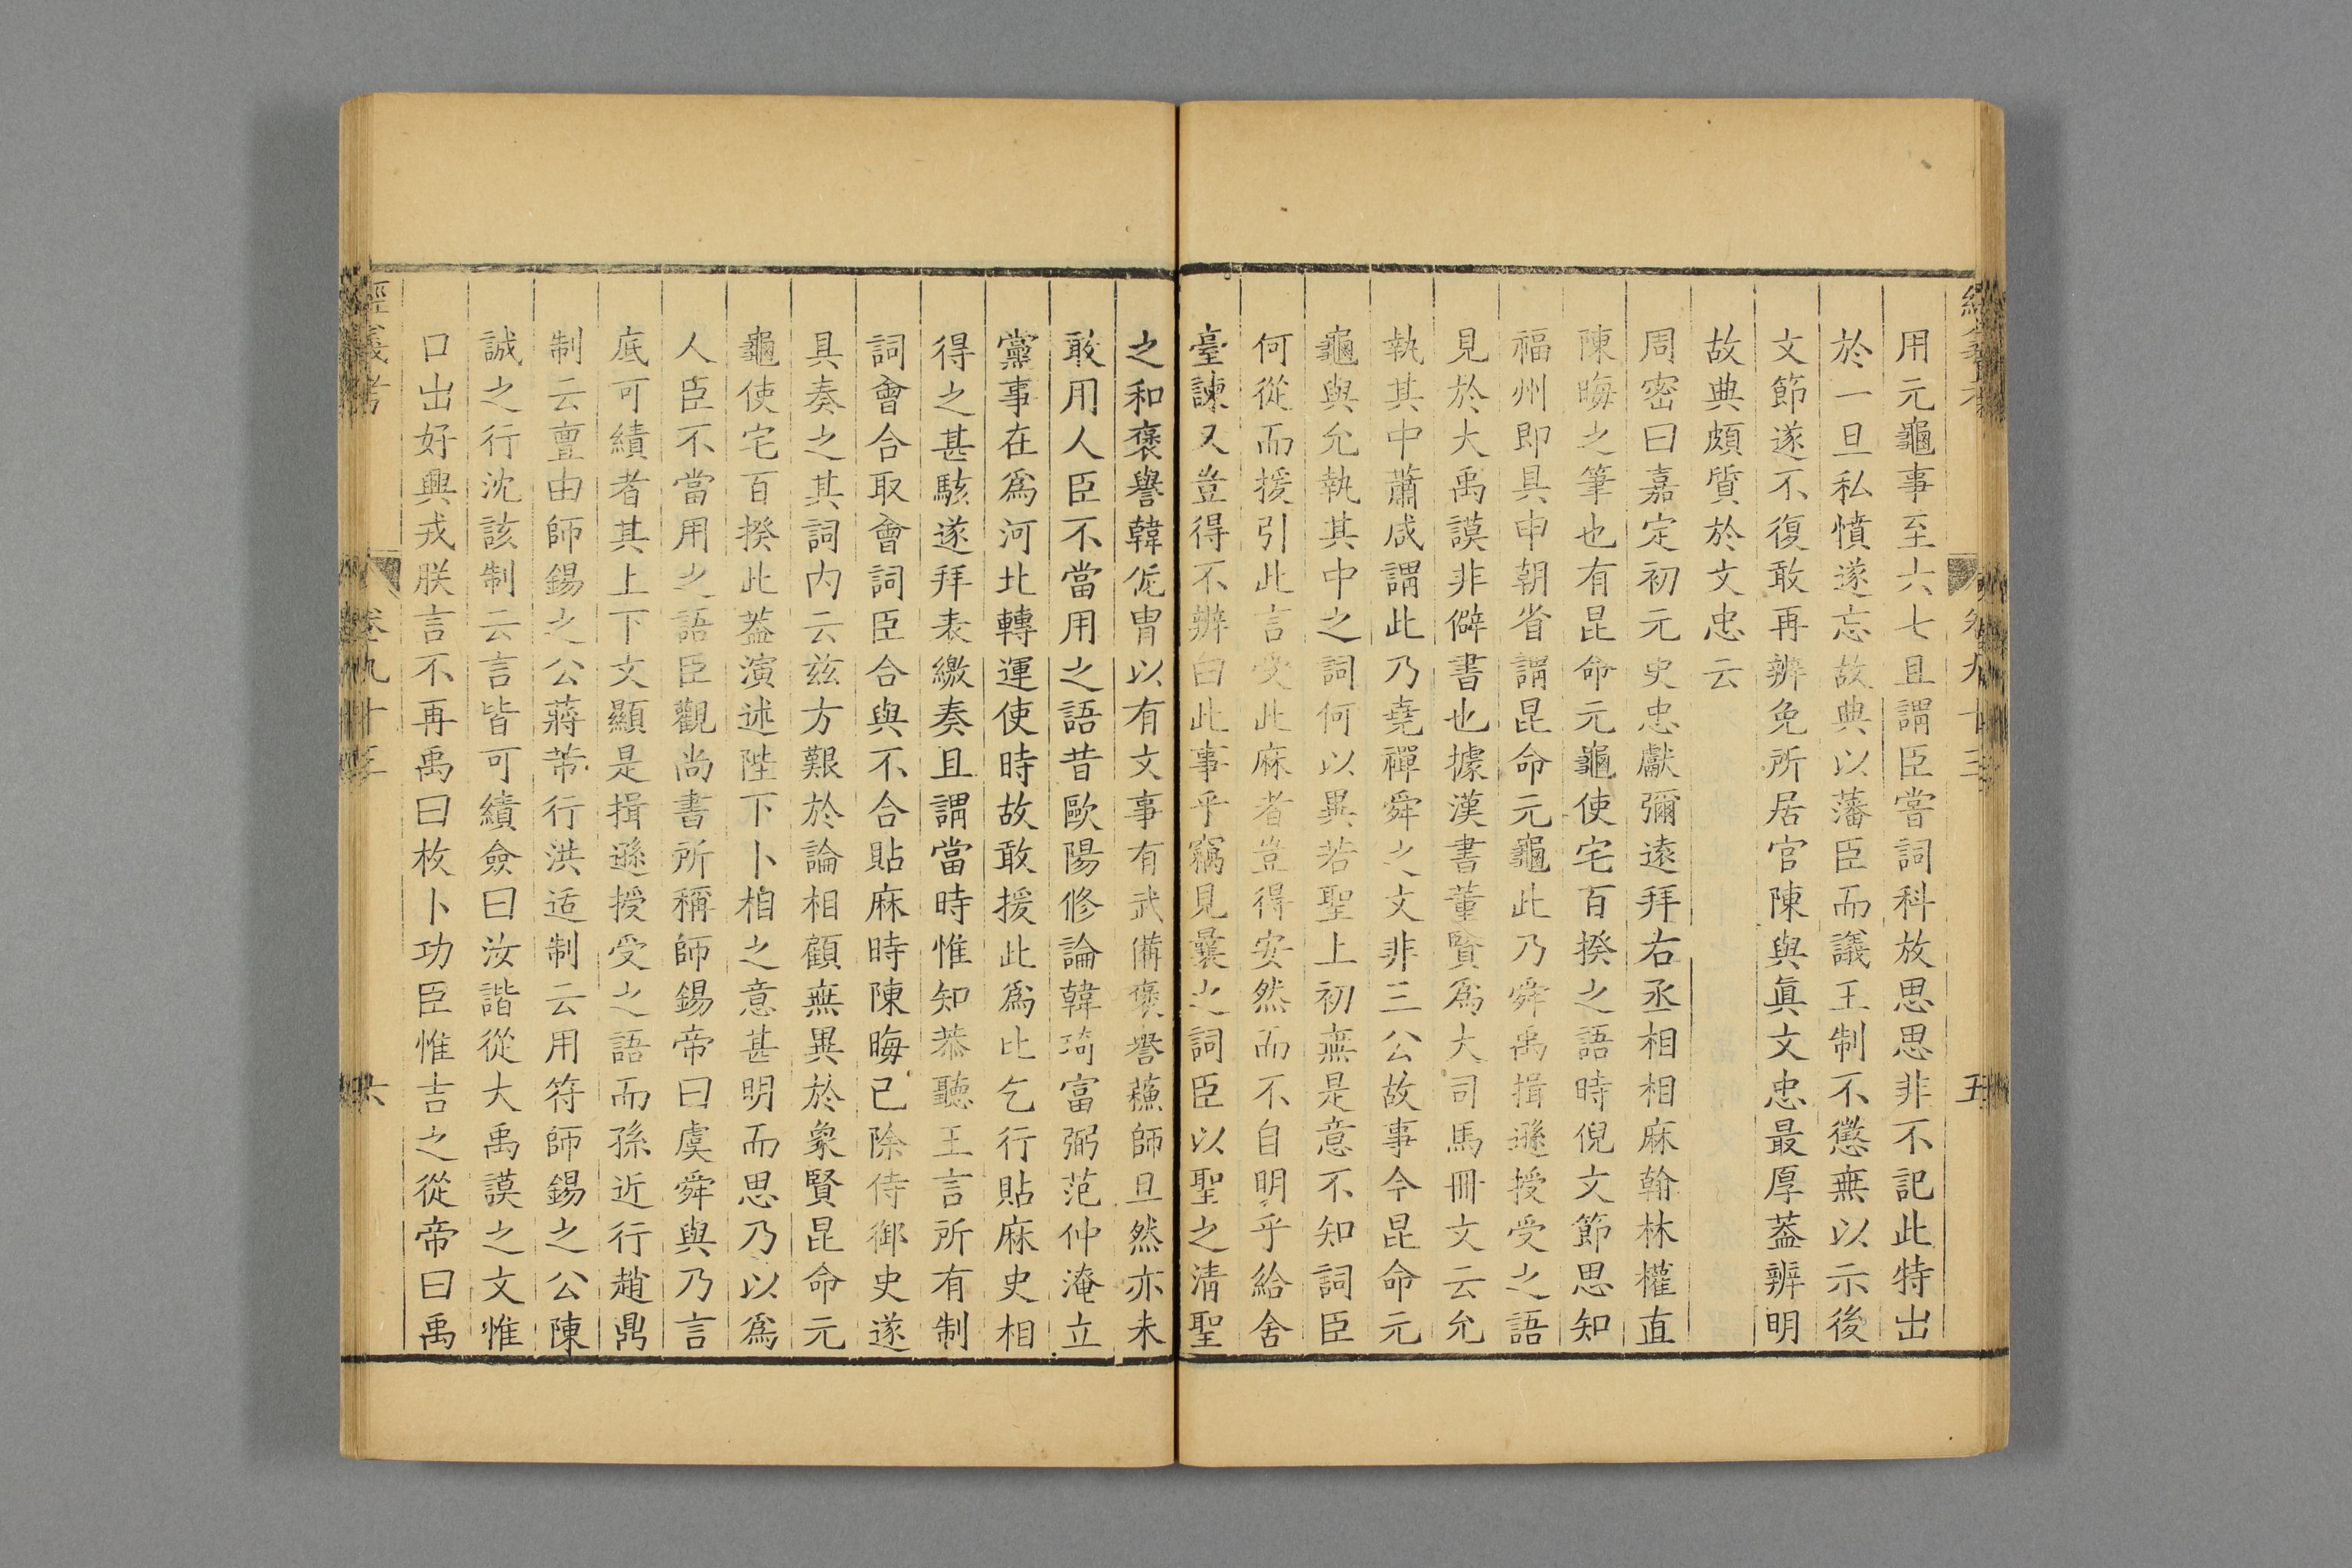 用元龜事至六七且謂臣嘗詞科放思思非不記此特出
於一旦私憤遂忘故典以藩臣而議王制不懲無以示後
文節遂不復敢再辨免所居官陳與眞文忠最厚葢辨明
故典頗質於文忠云
周密曰嘉定初元史忠獻彌遠拜右丞相相麻翰林權直
陳晦之筆也有昆命元龜使宅百揆之語時倪文節思知
福州即具申朝省謂昆命元龜此乃舜禹揖遜授受之語
見於大禹謨非僻書也據漢書董賢爲大司馬冊文云允
執其中蕭咸謂此乃堯禪舜之文非三公故事今昆命元
龜與允執其中之詞何以異若聖上初無是意不知詞臣
何從而援引此言受此麻者豈得安然而不自明乎給舍
臺諫又豈得不辨白此事乎竊見曩之詞臣以聖之淸聖
之和褒譽韓侂胄以有文事有武備褒譽蘓師旦然亦未
敢用人臣不當用之語昔歐陽修論韓琦富弼范仲淹立
黨事在爲河北轉運使時故敢援此爲比乞行貼麻史相
得之甚駭遂拜表繳奏且謂當時惟知恭聽王言所有制
詞會合取會詞臣合與不合貼麻時陳晦已除侍御史遂
具奏之其詞內云茲方艱於論相顧無異於象賢昆命元
龜使宅百揆此葢演述陛下卜相之意甚明而思乃以爲
人臣不當用之語臣觀尚書所稱師錫帝曰虞舜與乃言
底可績者其上下文顯是揖遜授受之語而孫近行趙鼎
制云亶由師錫之公蔣芾行洪适制云用符師錫之公陳
誠之行沈該制云言皆可績僉曰汝諧從大禹謨之文惟
口出好興戎朕言不再禹曰枚卜功臣惟吉之從帝曰禹
經義考
卷九十三
六
卷九十三
五